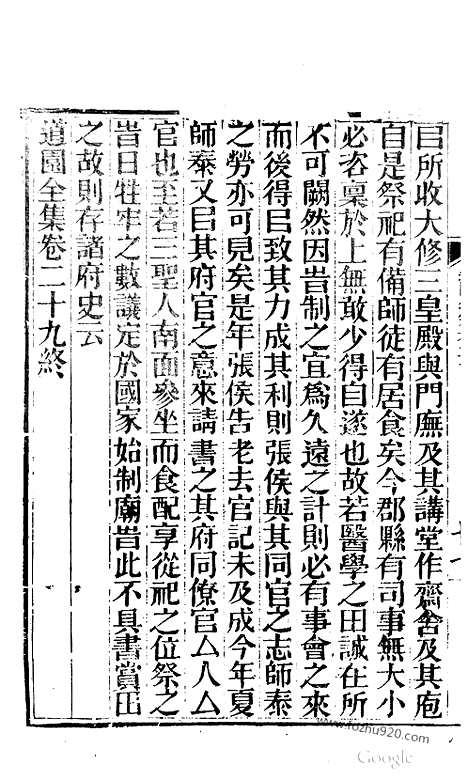 㠯所收大修三皇殿與門廡及其講堂作齋舍及其庖
自是祭祀有備師徒有居食矣今郡縣有司事無大小
必咨稟於上無敢少得自遂也故若醫學之田誠在所
不可闕然因旹制之宜爲久遠之計則必有事會之來
而後得㠯致其力成其利則張侯與其同官之志師泰
之勞亦可見矣是年張侯告老去官記未及成今年夏
師泰又㠯其府官之意來請書之其府同僚官厶人厶
官也至若三聖人南面參坐而食配享從祀之位祭之
旹日牲牢之數議定於國家始制廟旹此不具書賞田
之故則存諸府史云
道園全集卷二十九終
www.fozhu920.com
Google